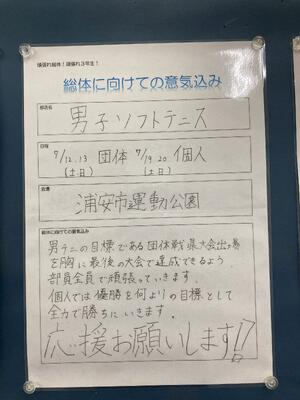 頑張れ総体！頑張れ3年生！
総体に向けての意気込み
部活名
男子ソフトテニス
日程
7/12.13 団体 7/19.20 個人
(土日) (土日)
会場
浦安市運動公園
総体に向けての意気込み
男テニの目標である団体戦県大会出場
を胸に最後の大会で達成できるよう
部員全員で頑張っていきます。
個人では優勝を何よりの目標として
全力で勝ちにいきます。
応援お願いします!!